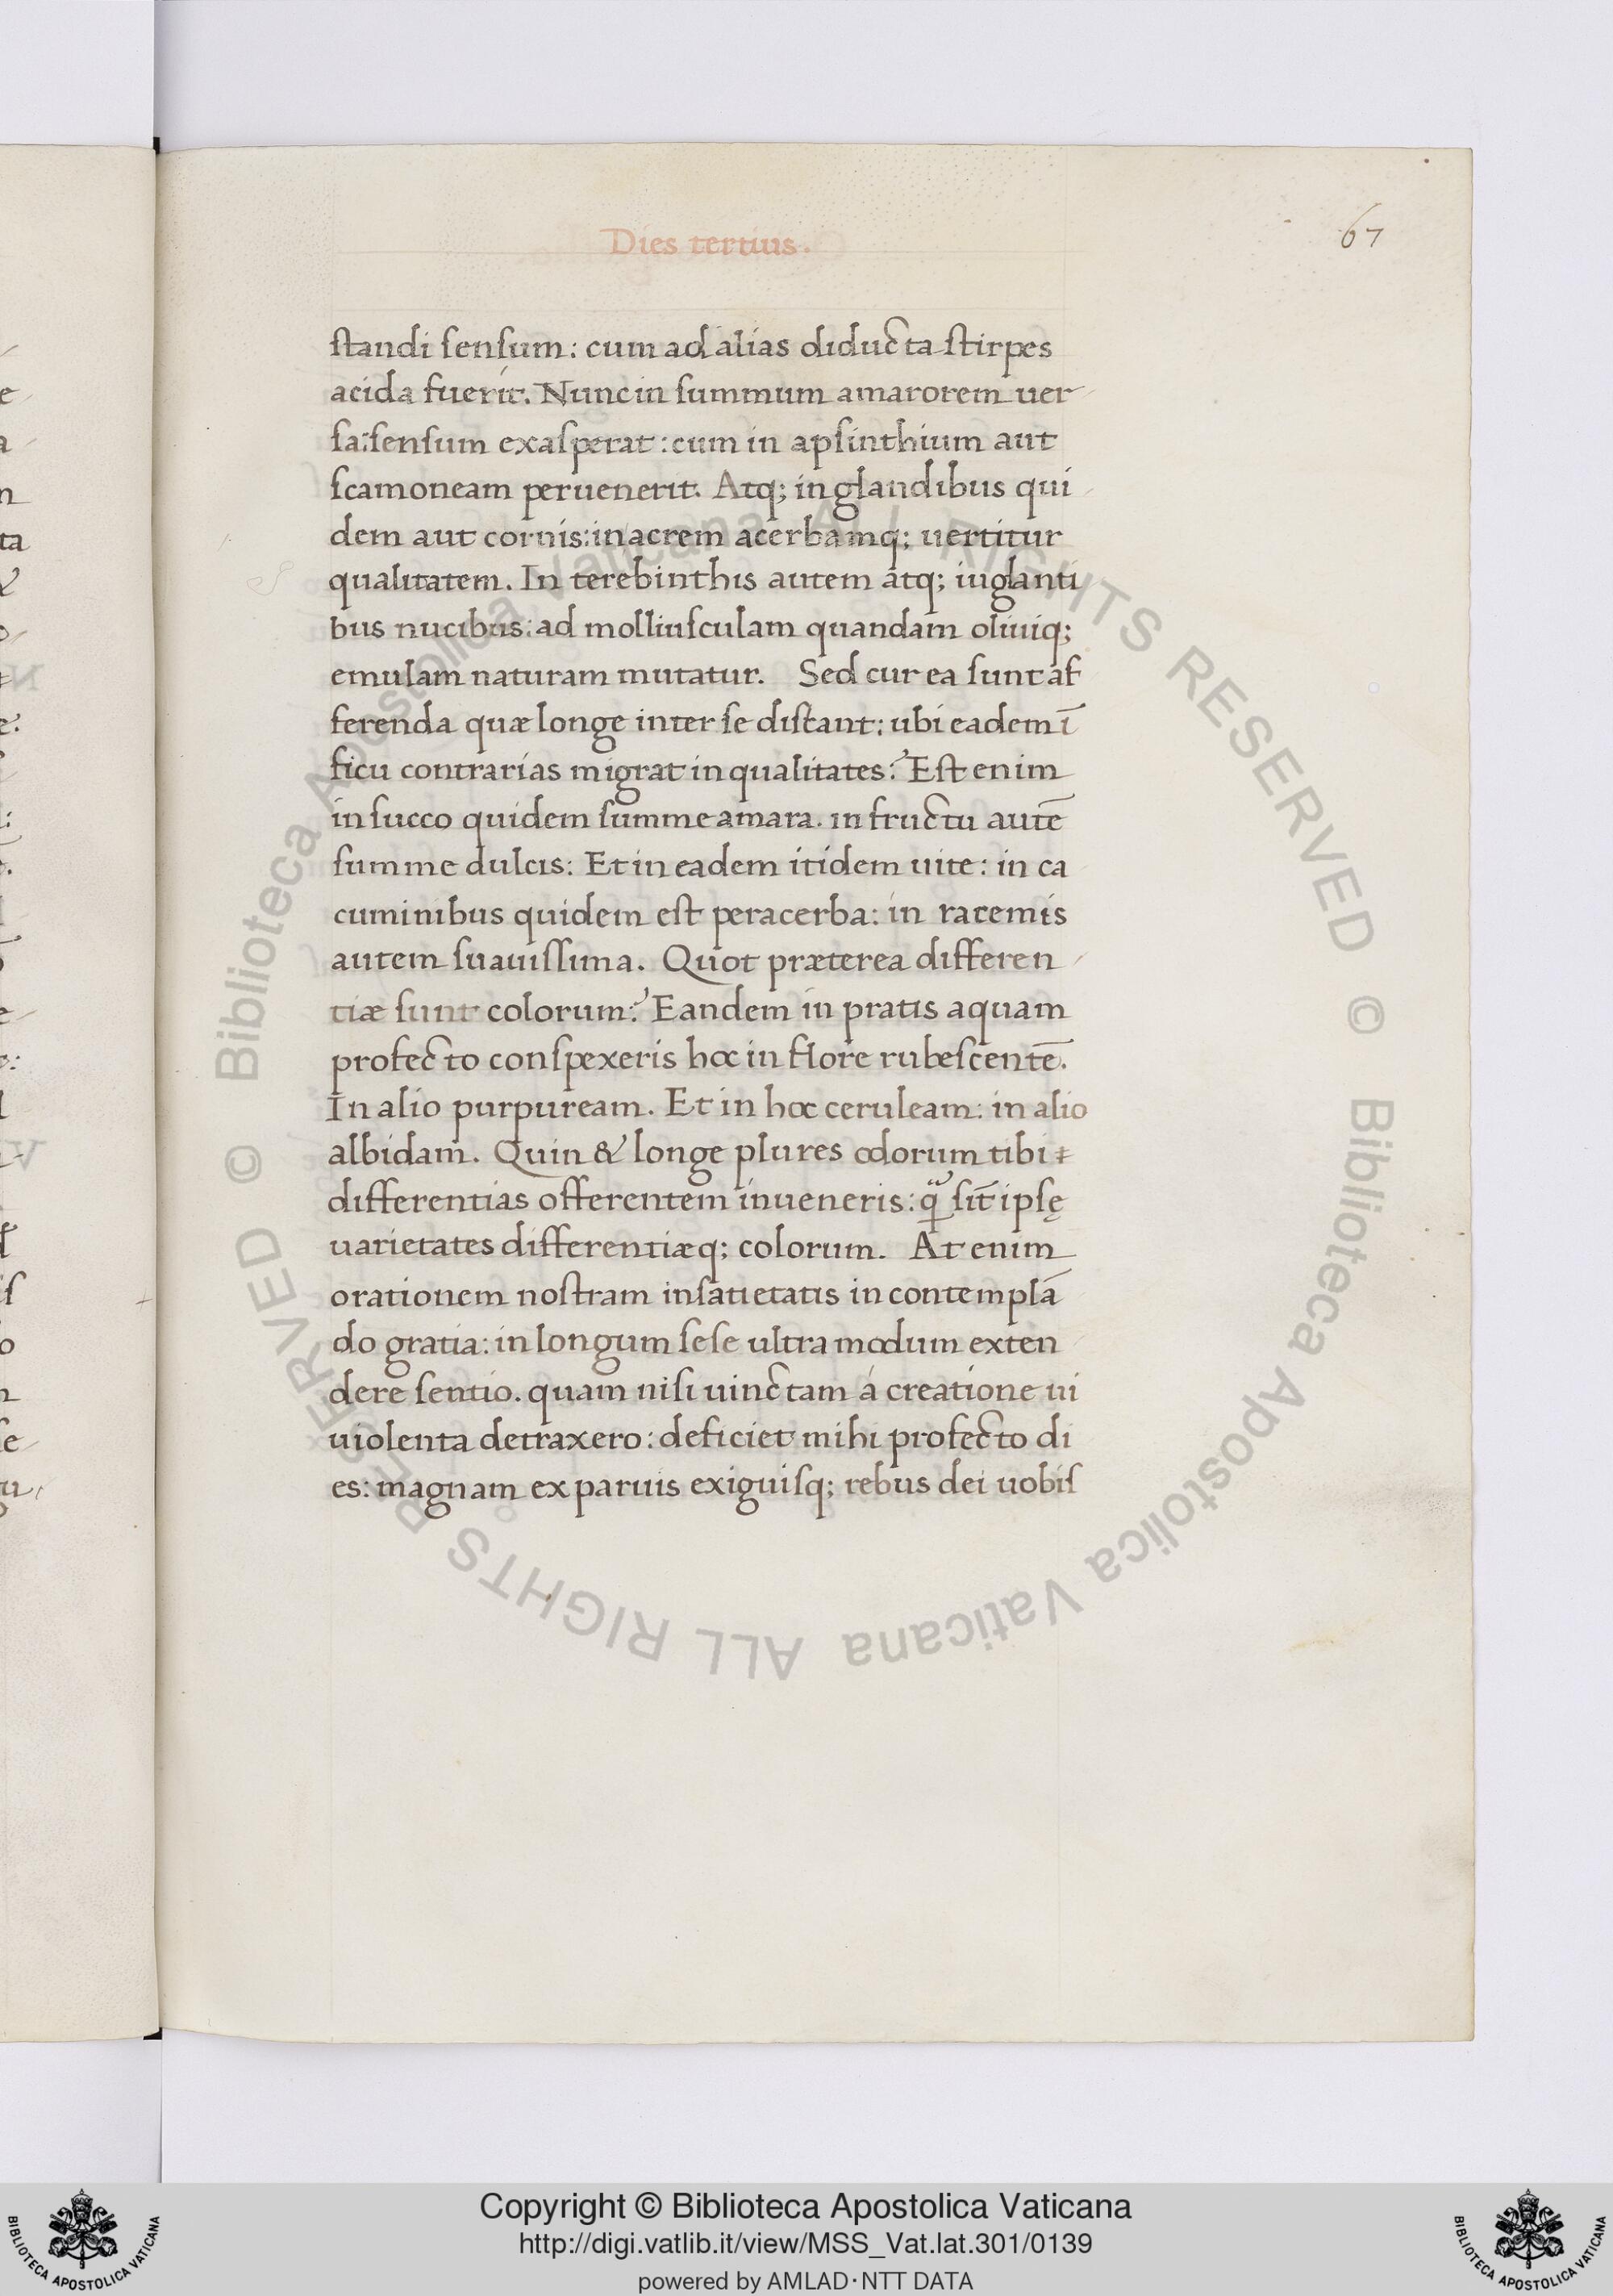 Dies tertius.
67
standi sensum: cum ad alias diducta stirpes
acida fuerit. Nunc in summum amarorem uer
sa: sensum exasperat: cum in apsinthium aut
scamoneam peruenerit. Atq; in glandibus qui
dem aut cornis: in acrem acerbamq; uertitur
qualitatem. In terebinthis autem atq; iuglanti
bus nucibus: ad molliusculam quandam oliuiq;
emulam naturam mutatur. Sed cur ea sunt af
ferenda quæ longe inter se distant: ubi eadem ī
ficu contrarias migrat in qualitates? Est enim
in succo quidem summe amara. in fructu autē
summe dulcis: Et in eadem itidem uite: in ca
cuminibus quidem est peracerba: in racemis
autem suauissima. Quot præterea differen
tiæ sunt colorum? Eandem in pratis aquam
profecto conspexeris hoc in flore rubescentē.
In alio purpuream. Et in hoc ceruleam: in alio
albidam. Quin & longe plures odorum tibi
differentias offerentem inueneris: q̄ sīt ipsę
uarietates differentiæq; colorum. At enim
orationem nostram insatietatis in contemplā
do gratia: in longum sese ultra modum exten
dere sentio. quam nisi uinctam á creatione ui
uiolenta detraxero: deficiet mihi profecto di
es: magnam ex paruis exiguisq; rebus dei uobis
© Biblioteca Apostolica Vaticana ALL RIGHTS RESERVED © Biblioteca Apostolica Vaticana ALL RIGHTS RESERVED
Copyright © Biblioteca Apostolica Vaticana
http://digi.vatlib.it/view/MSS_Vat.lat.301/0139
powered by AMLAD·NTT DATA
BIBLIOTECA APOSTOLICA VATICANA
BIBLIOTECA APOSTOLICA VATICANA